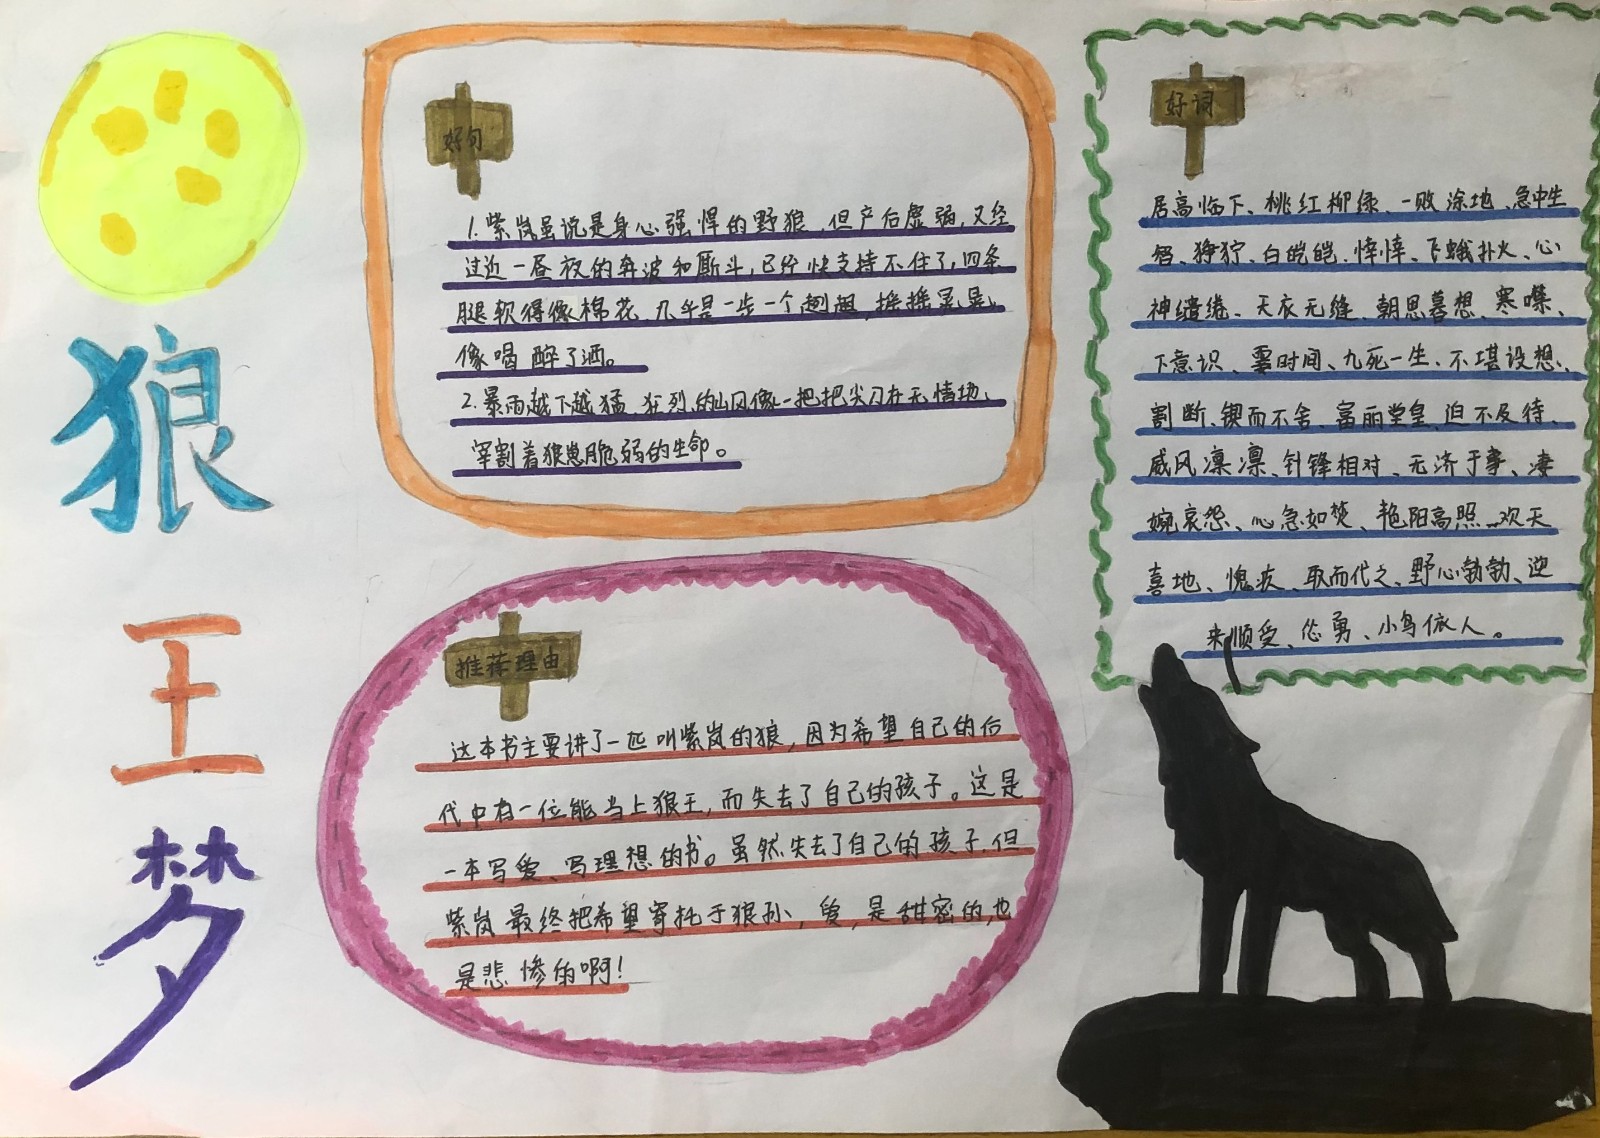 狼王梦
好句
1.紫岚虽说是身心强悍的野狼,但产后虚弱,又经
过近一昼夜的奔波和厮斗,已经快支持不住了,四条
腿软得像棉花,几乎是一步一个趔趄,摇摇晃晃,
像喝醉了酒。
2.暴雨越下越猛,狂烈的山风像一把把尖刀在无情地
宰割着狼崽脆弱的生命。
推荐理由
这本书主要讲了一匹叫紫岚的狼,因为希望自己的后
代中有一位能当上狼王,而失去了自己的孩子。这是
一本写爱、写理想的书。虽然失去了自己的孩子,但
紫岚最终把希望寄托于狼孙,爱,是甜密的,也
是悲惨的啊!
好词
居高临下、桃红柳绿、一败涂地、急中生
智、狰狞、白皑皑、悻悻、飞蛾扑火、心
神缱绻、天衣无缝、朝思暮想、寒噤、
下意识、霎时间、九死一生、不堪设想、
割断、锲而不舍、富丽堂皇、迫不及待、
威风凛凛、针锋相对、无济于事、凄
婉哀怨、心急如焚、艳阳高照、欢天
喜地、愧疚、取而代之、野心勃勃、逆
来顺受、怂勇、小鸟依人。